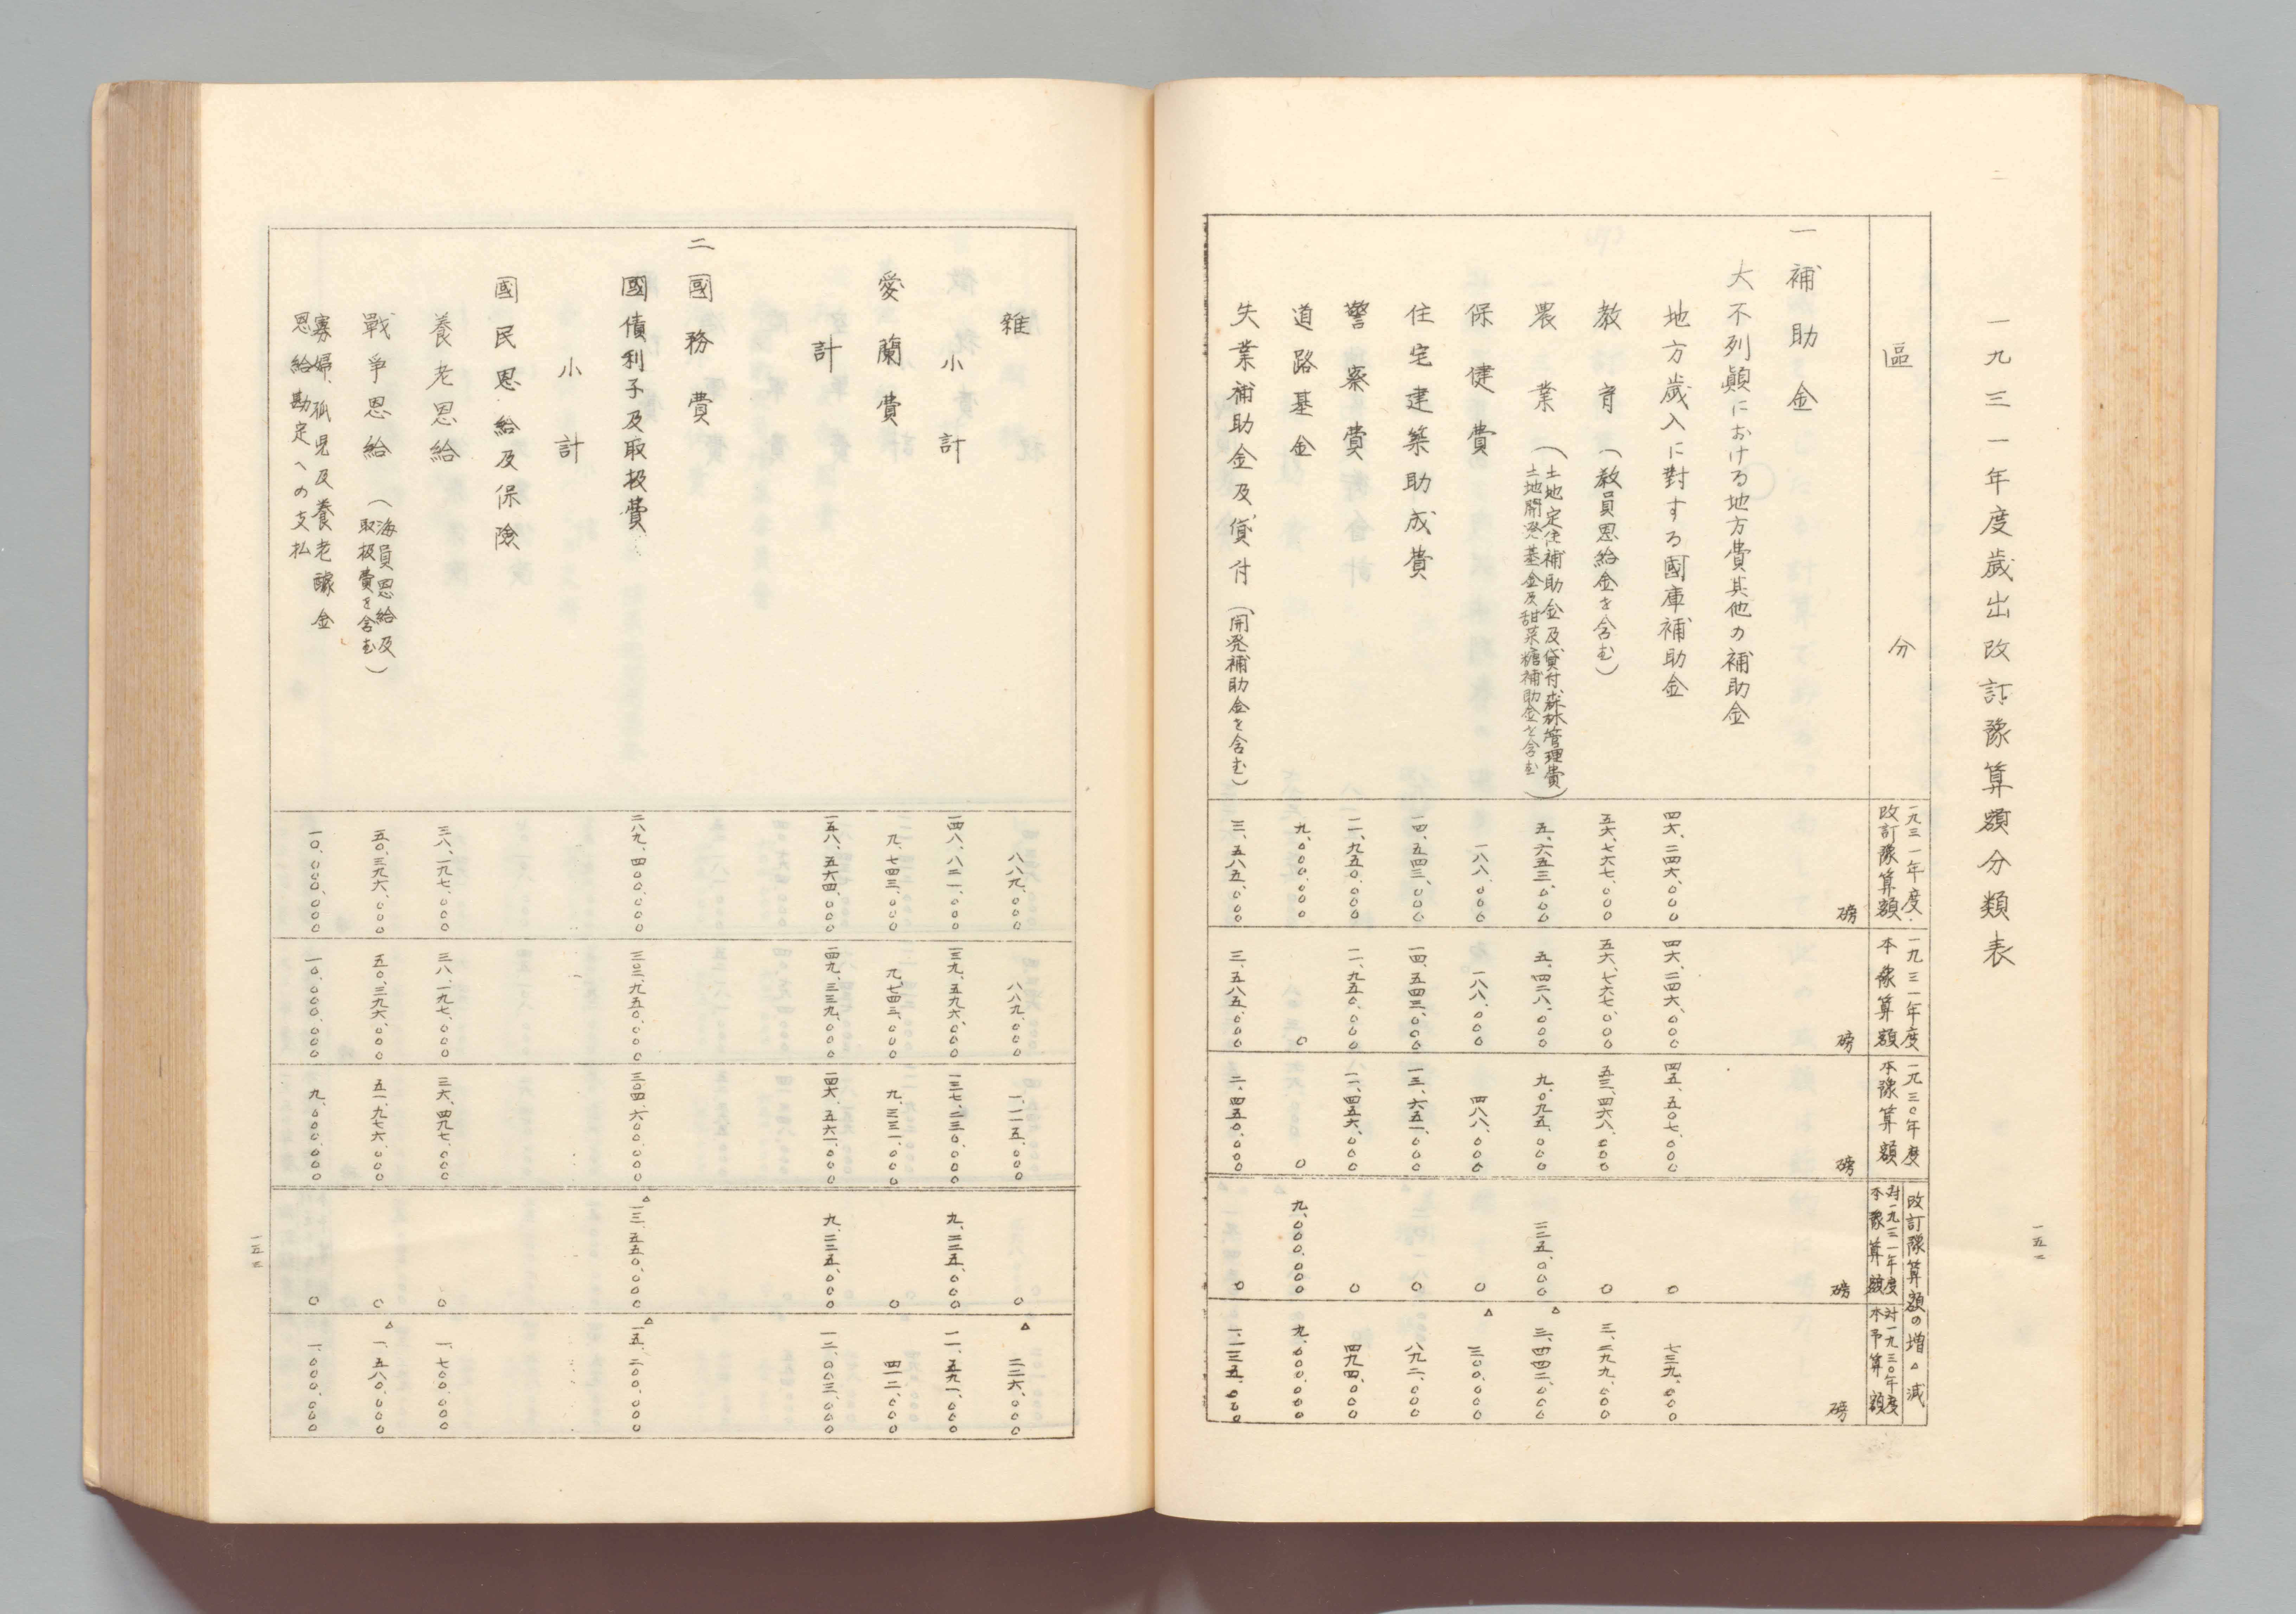 一九三一年度歳出改訂豫算額分類表
區分
一九三一年度改訂豫算額
一九三一年度本豫算額
一九三〇年度本豫算額
改訂豫算額の増△減
対一九三一年度本豫算額
対一九三〇年度本予算額
磅
磅
磅
磅
磅
一 補助金
大不列顚における地方費其他の補助金
地方歳入に對する國庫補助金 四六、二四六、〇〇〇 四六、二四六、〇〇〇 四五、五〇七、〇〇〇 〇 七三九、〇〇〇
教育(教員恩給金を含む) 五六、七六七、〇〇〇 五六、七六七、〇〇〇 五三、四六八、〇〇〇 〇 三、二九九、〇〇〇
農業(土地定住補助金及貸付森林管理費土地開発基金及甜菜糖補助金を含む) 五、六五三、〇〇〇 五、四二八、〇〇〇 九、〇九五、〇〇〇 二二五、〇〇〇 △三、四四二、〇〇〇
保健費 一八八、〇〇〇 一八八、〇〇〇 四八八、〇〇〇 〇 △三〇〇、〇〇〇
住宅建築助成費 一四、五四三、〇〇〇 一四、五四三、〇〇〇 一三、六五一、〇〇〇 〇 八九二、〇〇〇
警察費 一一、九五〇、〇〇〇 一一、九五〇、〇〇〇 一一、四五六、〇〇〇 〇 四九四、〇〇〇
道路基金 九、〇〇〇、〇〇〇 〇 〇 九、〇〇〇、〇〇〇 九、〇〇〇、〇〇〇
失業補助金及貸付(開発補助金を含む) 三、五八五、〇〇〇 三、五八五、〇〇〇 二、四五〇、〇〇〇 〇 一、一三五、〇〇〇
一五二
雜 八八九、〇〇〇 八八九、〇〇〇 一、一一五、〇〇〇 〇 △二二六、〇〇〇
小計 一四八、八二一、〇〇〇 一三九、五九六、〇〇〇 一三七、二三〇、〇〇〇 九、二二五、〇〇〇 一一、五九一、〇〇〇
愛蘭費 九、七四三、〇〇〇 九、七四三、〇〇〇 九、三三一、〇〇〇 〇 四一二、〇〇〇
計 一五八、五六四、〇〇〇 一四九、三三九、〇〇〇 一四六、五六一、〇〇〇 九、二二五、〇〇〇 一二、〇〇三、〇〇〇
二 國務費
國債利子及取扱費 二八九、四〇〇、〇〇〇 三〇二、九五〇、〇〇〇 三〇四、六〇〇、〇〇〇 △一三、五五〇、〇〇〇 △一五、二〇〇、〇〇〇
小計
國民恩給及保險
養老恩給 三八、一九七、〇〇〇 三八、一九七、〇〇〇 三六、四九七、〇〇〇 〇 一、七〇〇、〇〇〇
戰爭恩給(海員恩給及取扱費を含む) 五〇、三九六、〇〇〇 五〇、三九六、〇〇〇 五一、九七六、〇〇〇 〇 △一、五八〇、〇〇〇
寡婦、孤児及養老醵金恩給勘定への支払 一〇、〇〇〇、〇〇〇 一〇、〇〇〇、〇〇〇 九、〇〇〇、〇〇〇 〇 一、〇〇〇、〇〇〇
一五三